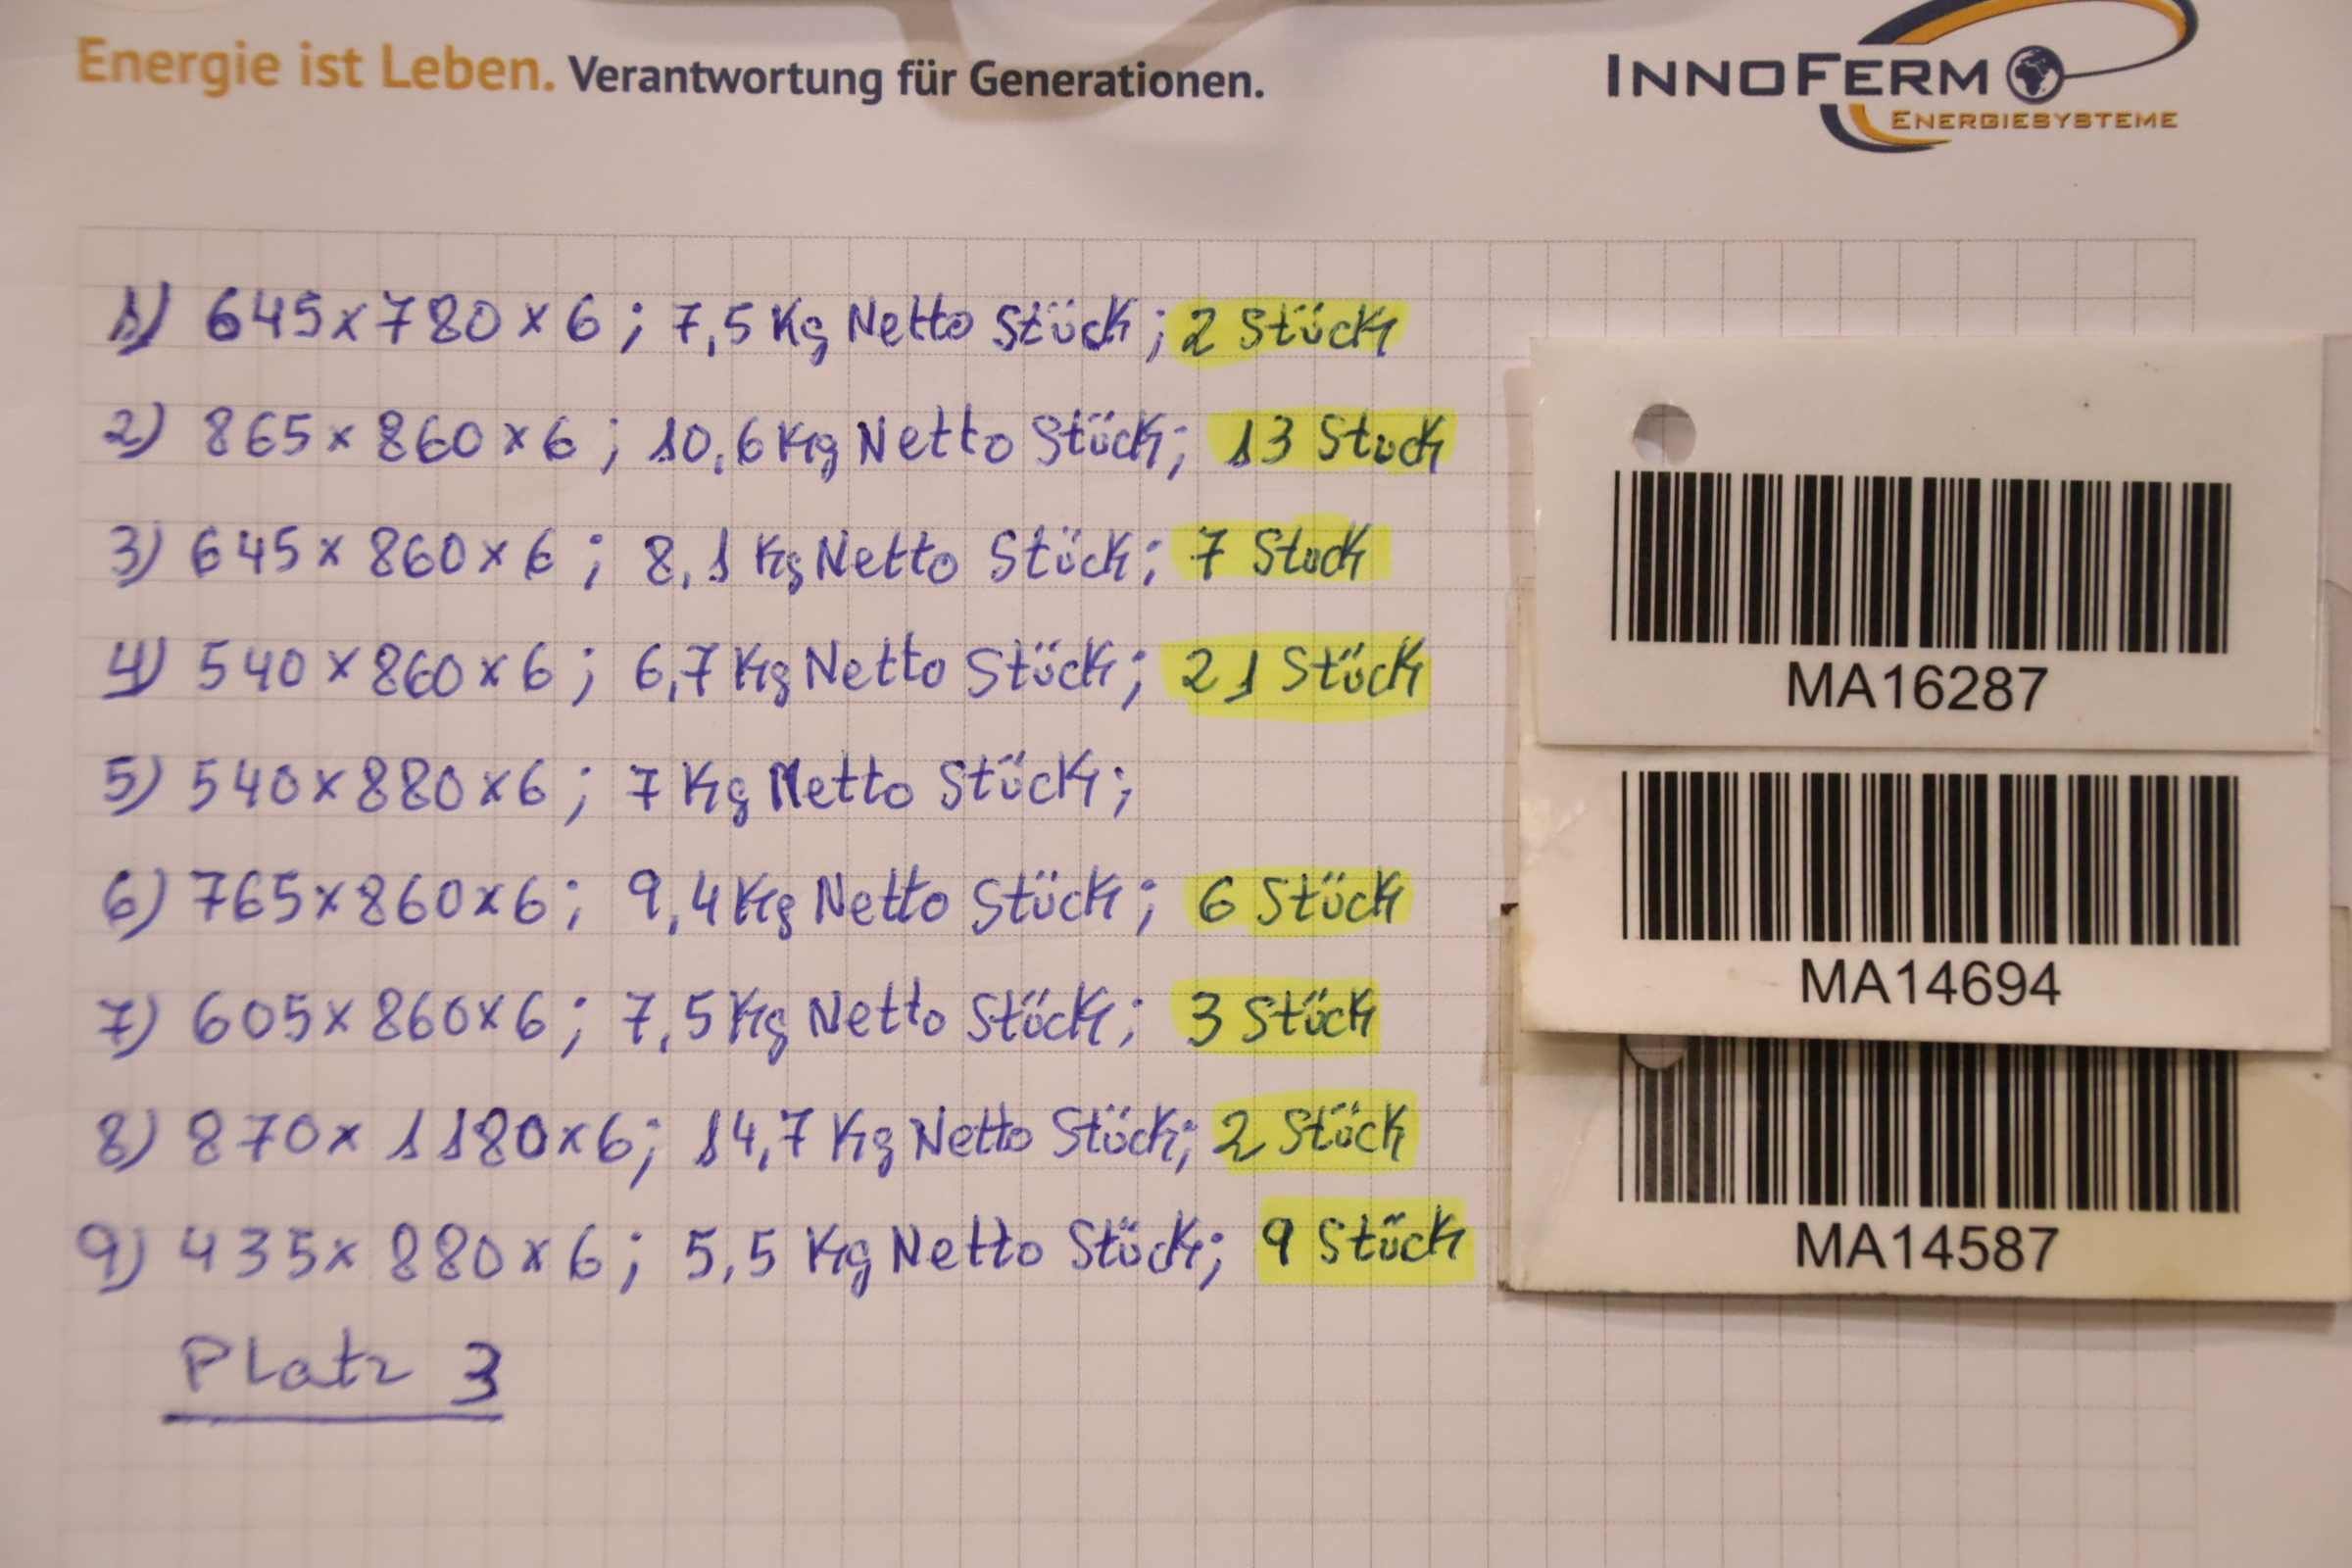 Energie ist Leben. Verantwortung für Generationen.
INNOFERM
ENERGIESYSTEME
1) 645x780x6; 7,5 Kg Netto Stück; 2 Stück
2) 865x860x6; 10,6 Kg Netto Stück; 13 Stuck
3) 645x860x6; 8,1 Kg Netto Stück; 7 Stuck
4) 540x860x6; 6,7 Kg Netto Stück; 21 Stück
5) 540x880x6; 7 Kg Netto Stück;
6) 765x860x6; 9,4 Kg Netto Stück; 6 Stück
7) 605x860x6; 7,5 Kg Netto Stück; 3 Stück
8) 870x1180x6; 14,7 Kg Netto Stück; 2 Stück
9) 435x880x6; 5,5 Kg Netto Stück; 9 Stück
Platz 3
MA16287
MA14694
MA14587